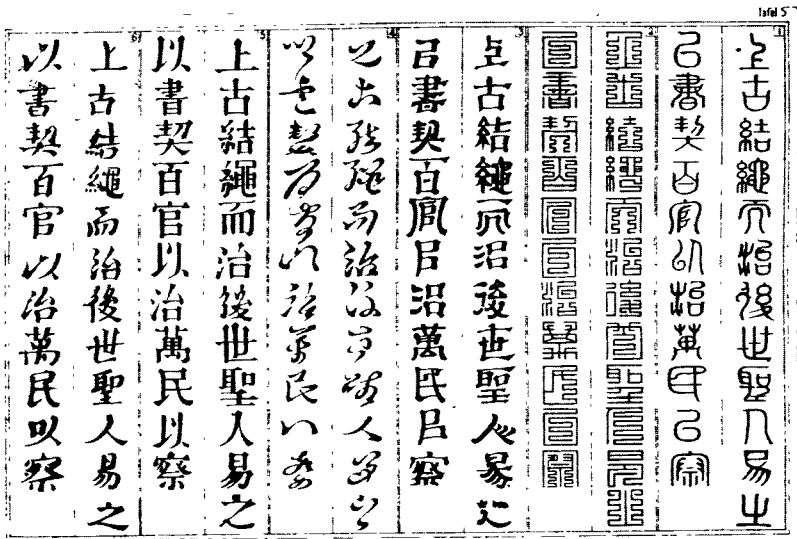 Tafel 5
1
上古結繩而治後世聖人易之
以書契百官以治萬民以察
2
上古結繩而治後世聖人易之
以書契百官以治萬民以察
上古結繩而治後世聖人易之
以書契百官以治萬民以察
4
上古結繩而治後世聖人易之
以書契百官以治萬民以察
5
上古結繩而治後世聖人易之
以書契百官以治萬民以察
6
上古結繩而治後世聖人易之
以書契百官以治萬民以察